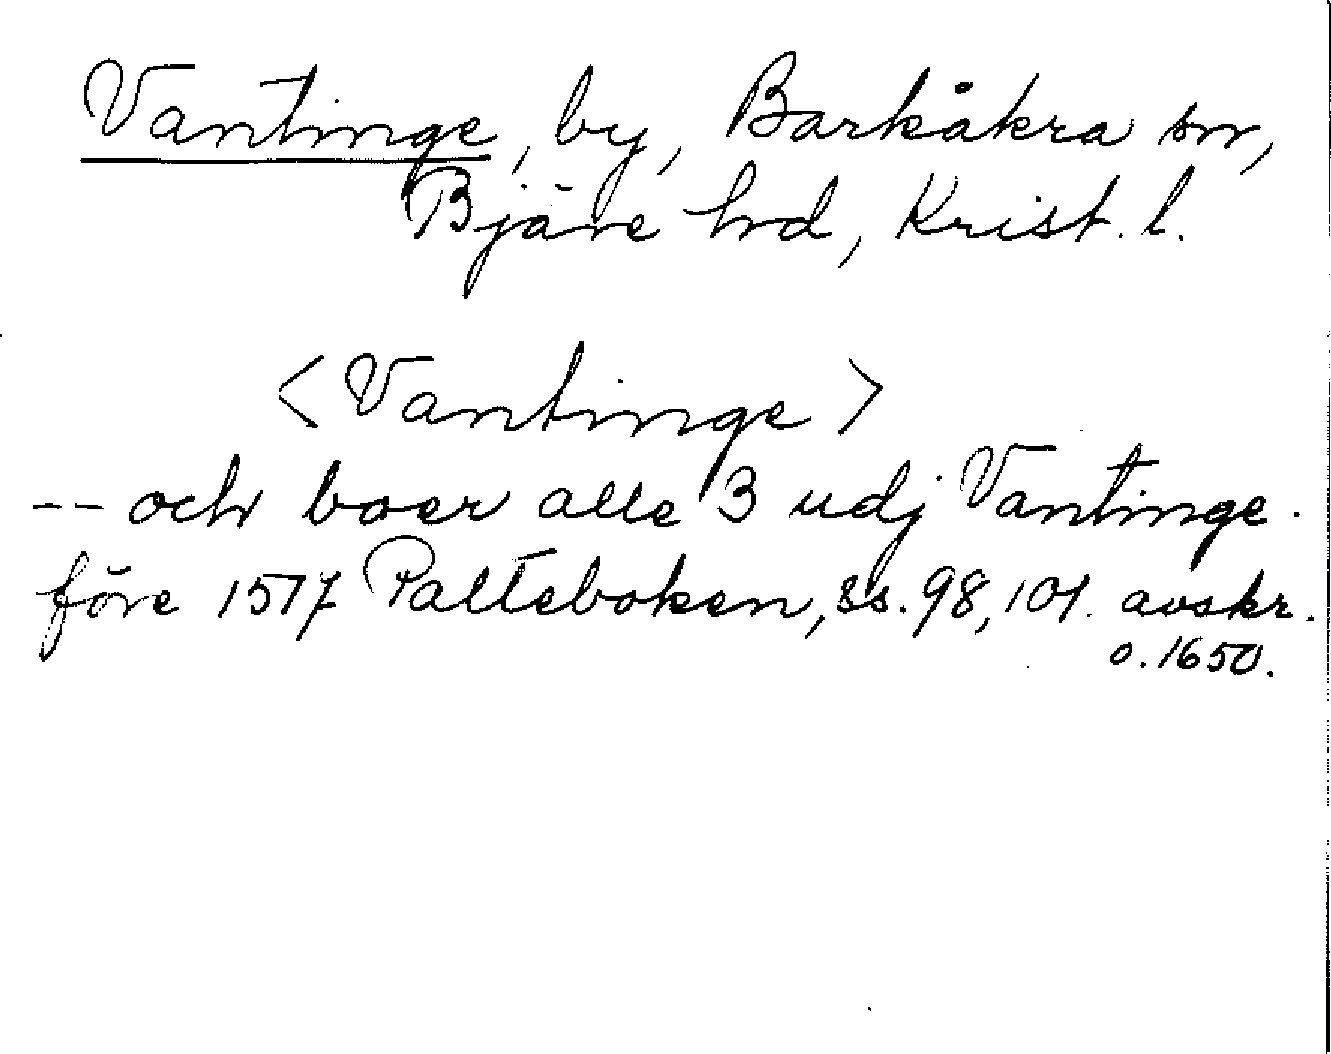 Vantinge, by, Barkåkra sn,
Bjäre hrd, Krist. l.
<Vantinge>
-- och boer alle 3 udj Vantinge.
före 1517 Palteboken, ss. 98, 101. avskr.
o. 1650.